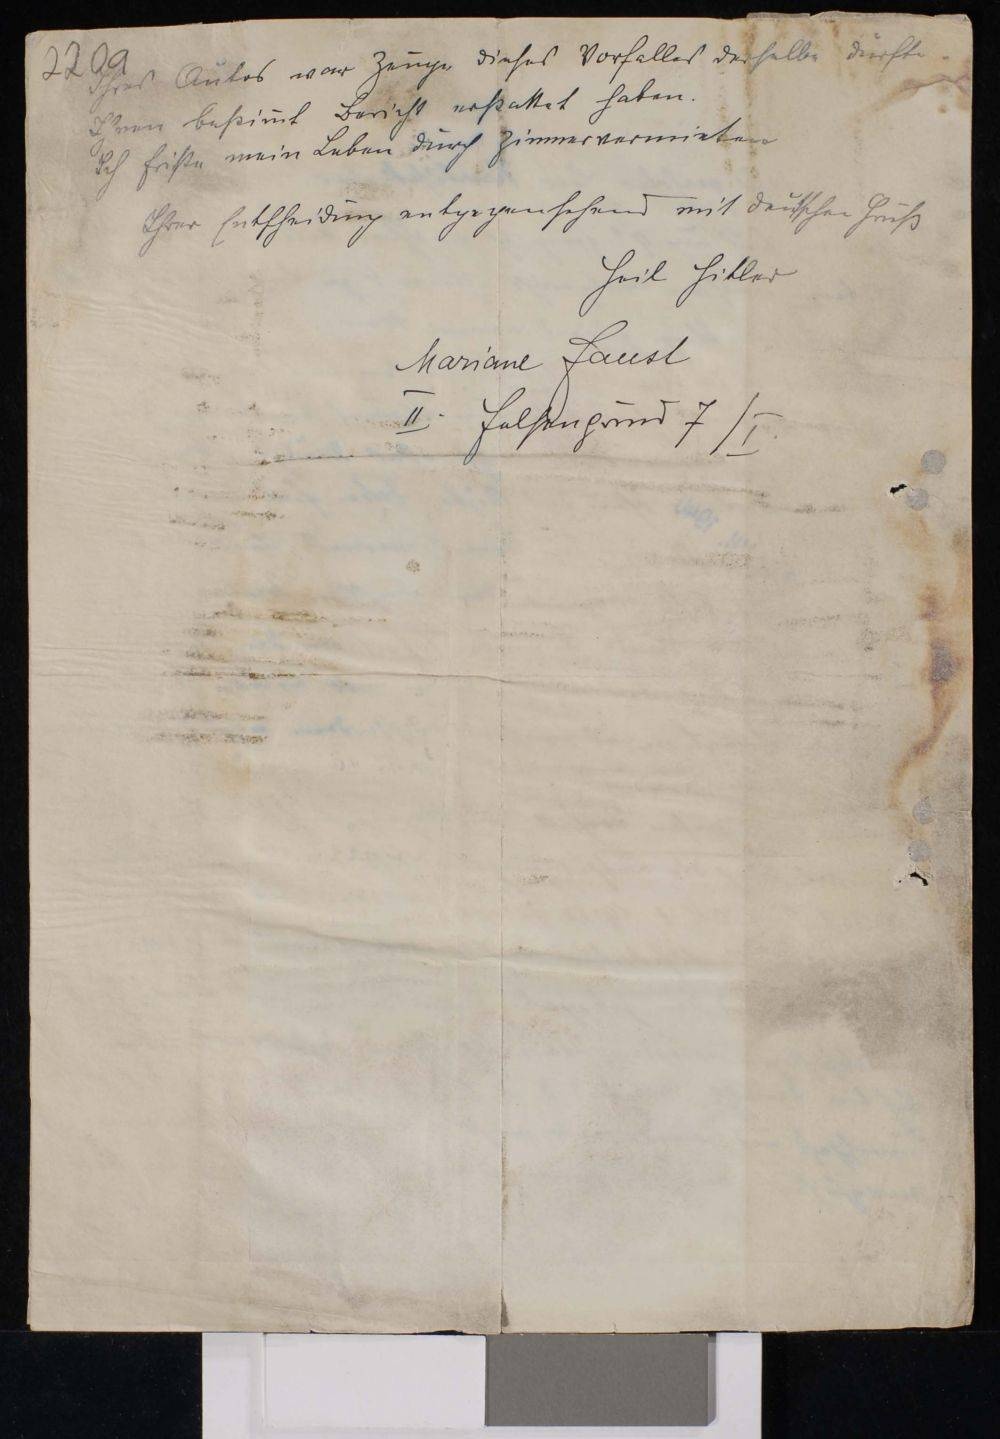 2209
Ihres Autos war Zeuge dieses Vorfalles derselbe dürfte
Ihnen bestimt Bericht erstattet haben.
Ich friste mein Leben durch Zimmervermieten
Ihrer Entscheidung entgegensehend mit deutschen Gruß
Heil Hitler
Mariane Faust
II. Felsengrund 7/I.